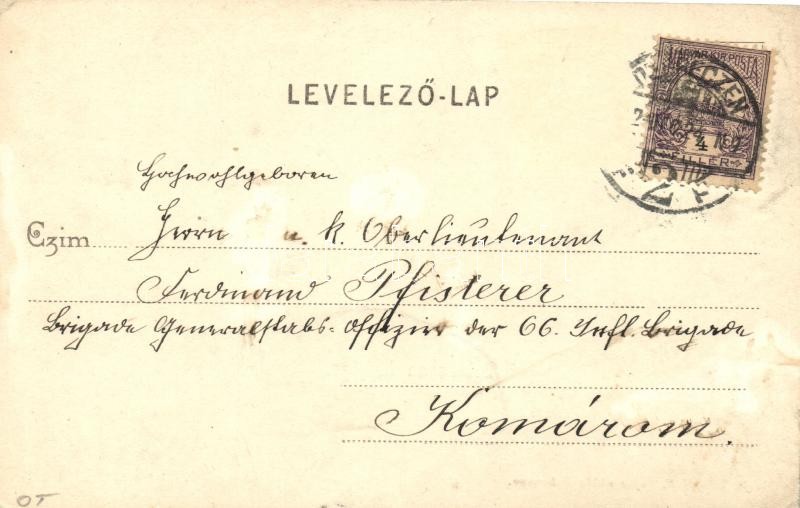 MAGYAR KIR. POSTA
4
FILLER
LEVELEZŐ-LAP
Hochwohlgeboren
Czim Herrn u. k. Oberlieutenant
Ferdinand Pfisterer
Brigade Generalstabs-Offizier der 66. Inft. Brigade
Komárom.
OT